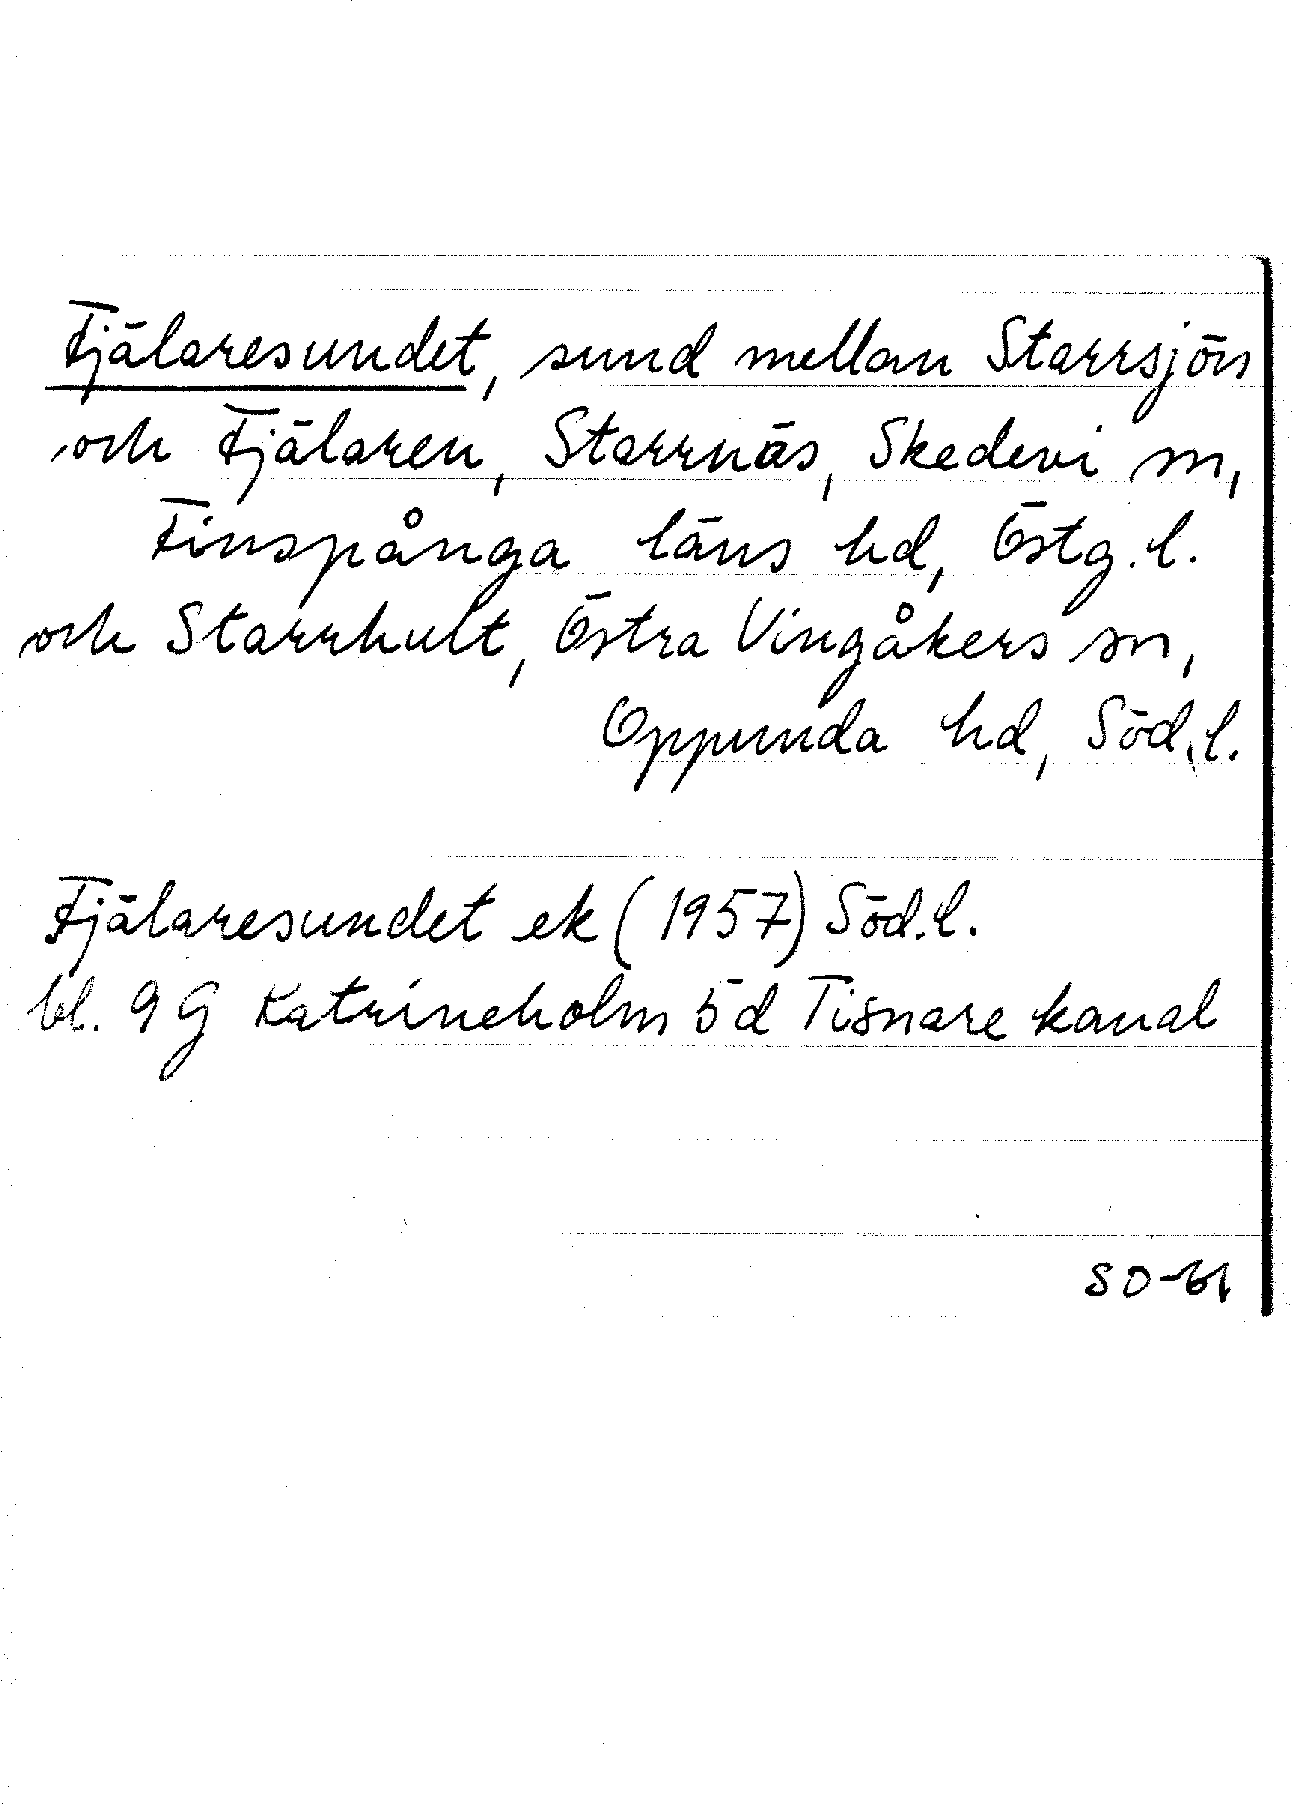 Fjälaresundet, sund mellan Starrsjön
och Fjälaren, Starrnäs, Skedevi sn,
Finspånga läns hd, Östg.l.
och Starrhult, Östra Vingåkers sn,
Oppunda hd, Söd.l.
Fjälaresundet ek (1957) Söd.l.
bl. 9G Katrineholm 5d Tisnare kanal
SO-61